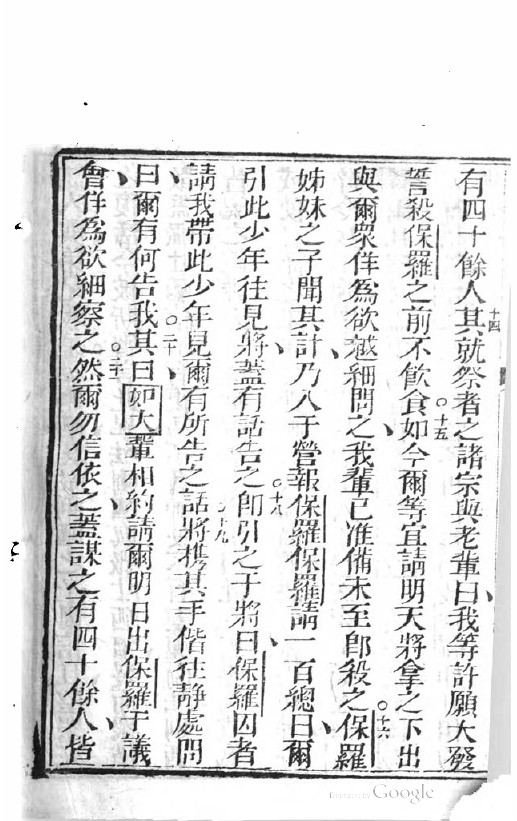 有四十餘人其十四就祭者之諸宗與老輩曰我等許願大發
誓殺保羅之前不飲食○十五如今爾等宜請明天將拿之下出
與爾衆佯為欲越細問之我輩已准備未至即殺之○十六保羅
姊妹之子聞其計乃入于營報保羅○十八保羅請一百總曰爾
引此少年往見將蓋有話告之即引之于將曰保羅囚者
請我帶此少年見爾有所告之話○十九將携其手偕往靜處問
曰爾有何告我○二十其曰如大輩相約請爾明日出保羅于議
會佯為欲細察之○二一然爾勿信依之蓋謀之有四十餘人皆
Google